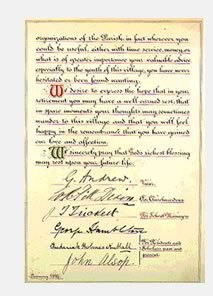 organizations of the Parish, in fact wherever you
could be useful, either with time service, money, or
what is of greater importance your valuable advice
especially to the youth of this village, you have never
hesitated or been found wanting.
We desire to express the hope that in your
retirement you may have a well earned rest, that
in spare moments your thoughts may sometimes
wander to this village and that you will feel
happy in the remembrance that you have gained
our love and affection.
We sincerely pray that God's richest blessing
may rest upon your future life.
G. Andrew.
Vicar.
Churchwardens
J. T. Trickett
School Managers
George Hambleton
Frederick Holmes
Residents and
Scholars past and
present.
John Alsop.